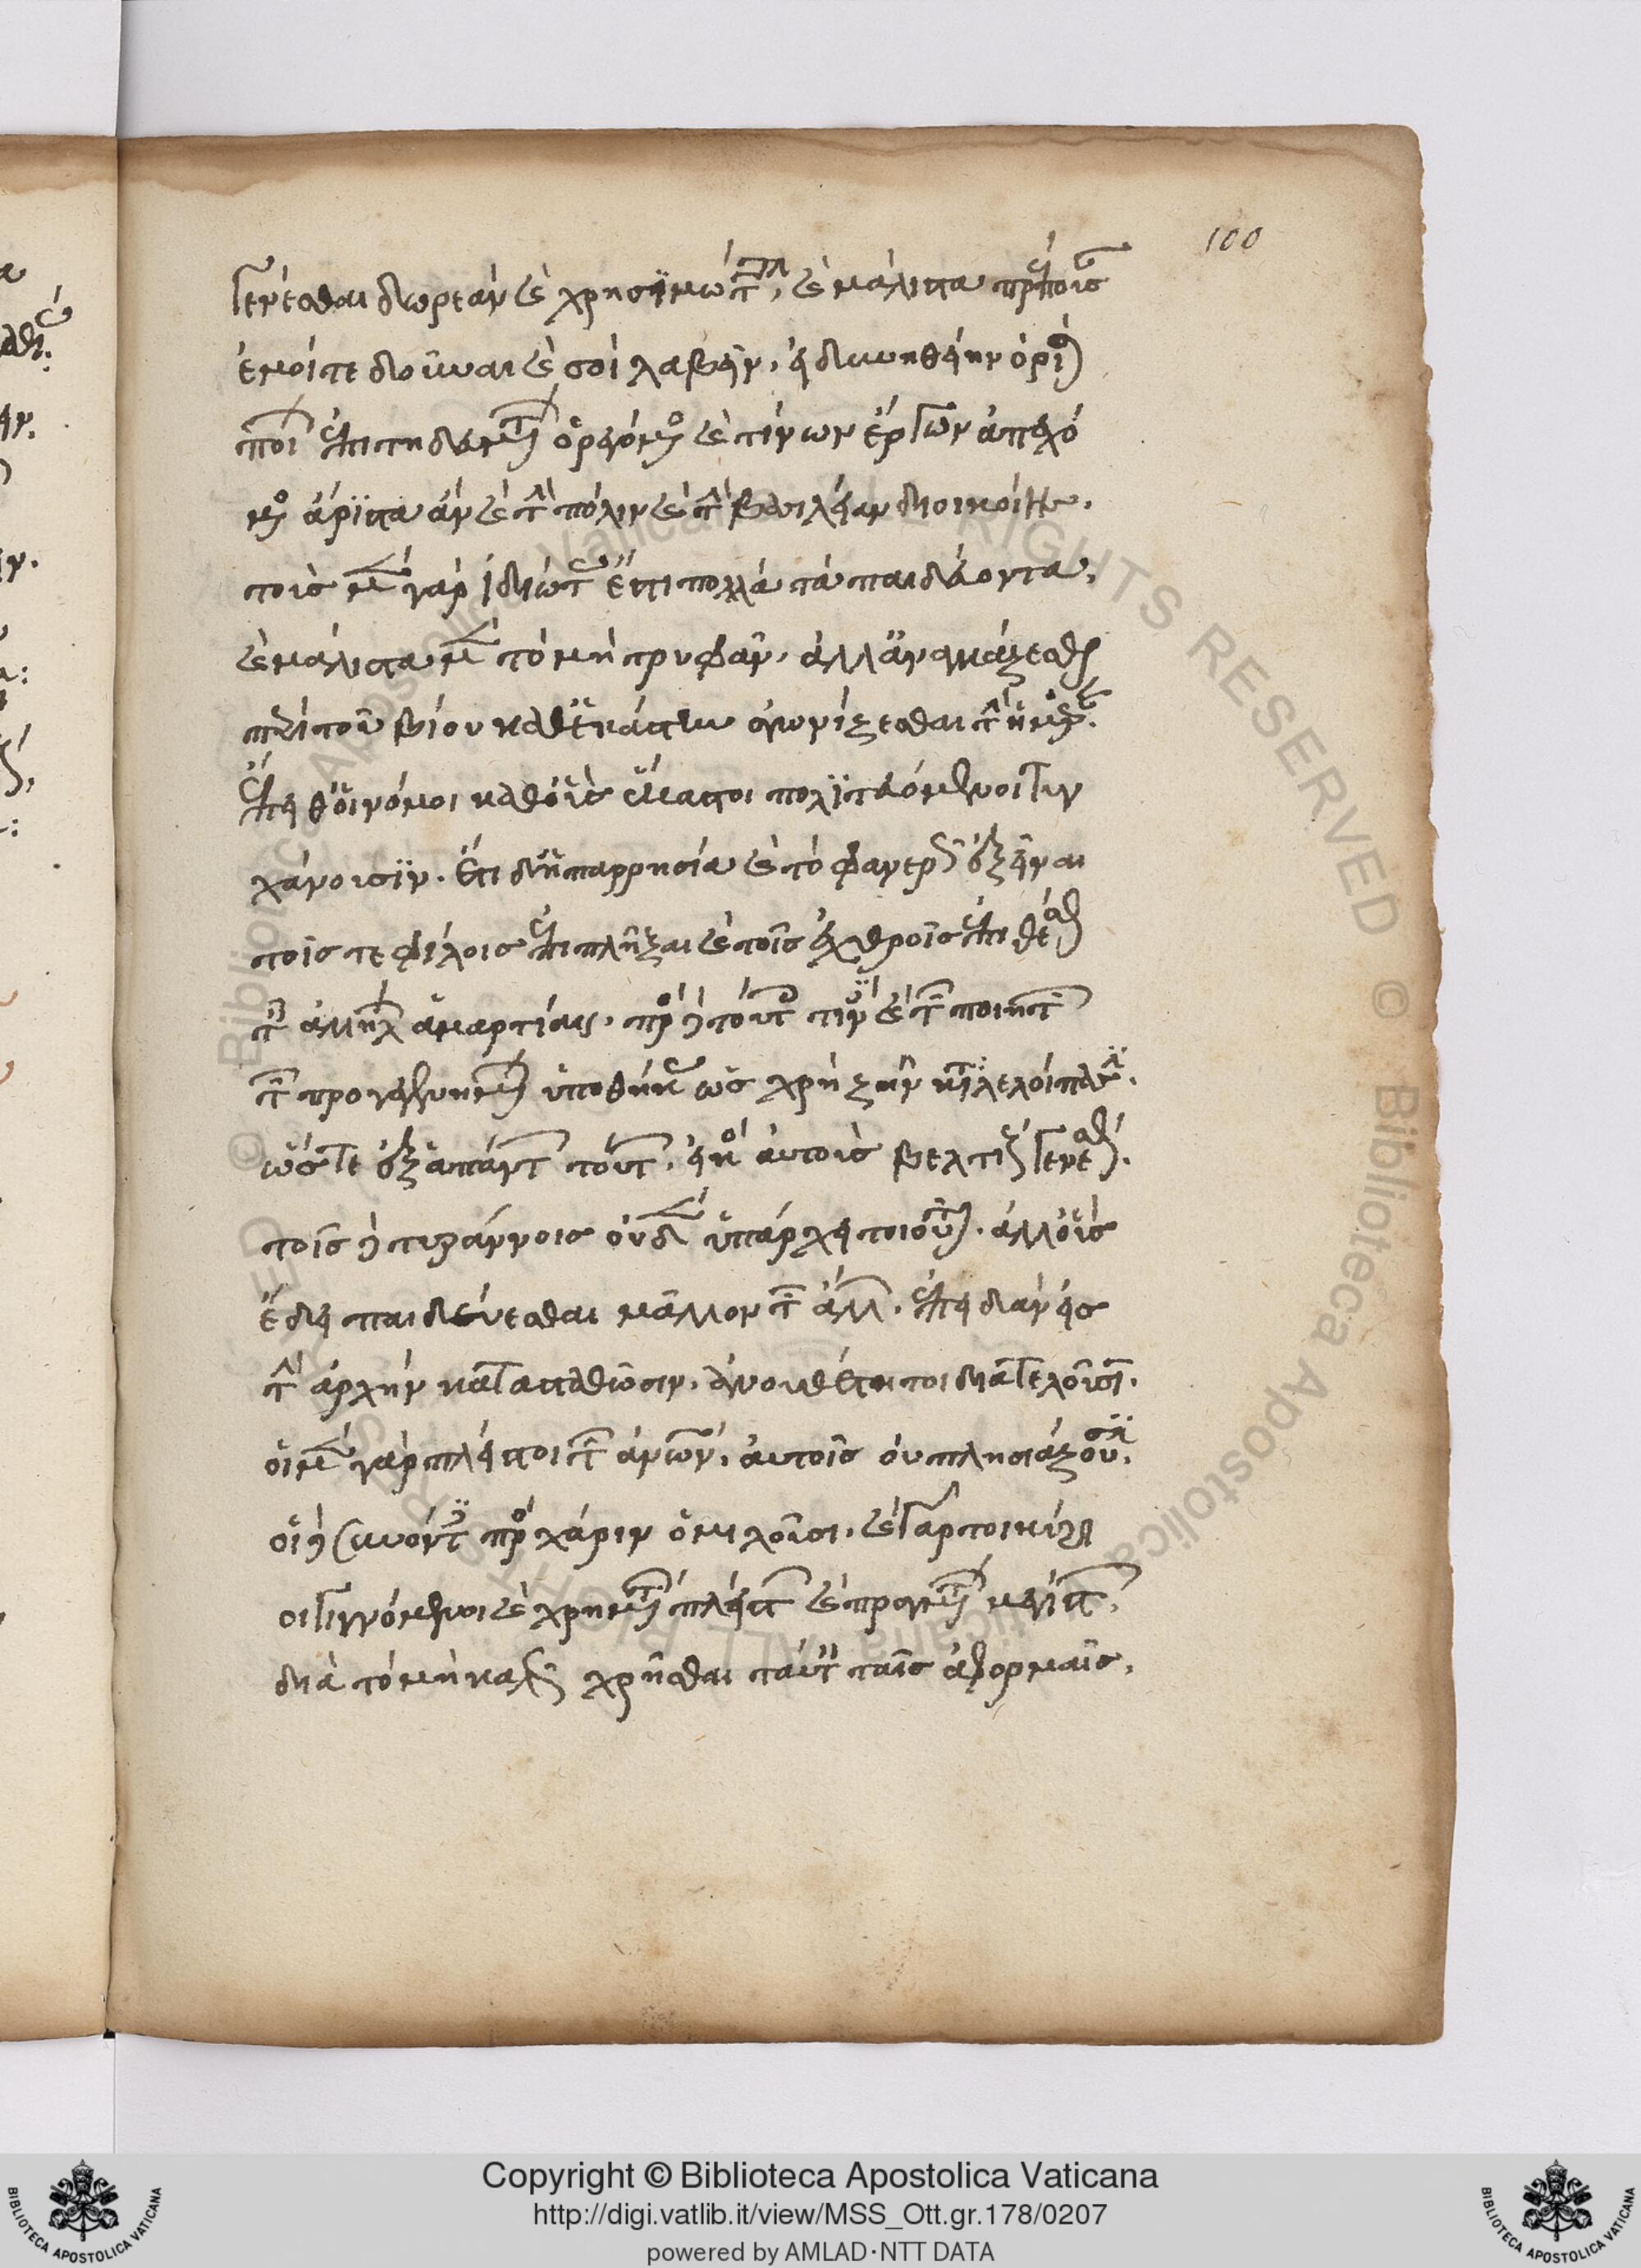 100
γενέσθαι δωρεὰν καὶ χρησιμωτάτην, καὶ μάλιστα πρέπουσαν
ἐμοί τε δοῦναι καὶ σοὶ λαβεῖν, εἰ δυνηθείην ὁρίσαι
ποίων ἐπιτηδευμάτων ὀρεγόμενος καὶ τίνων ἔργων ἀπεχό
μενος ἄριστα ἂν καὶ τὴν πόλιν καὶ τὴν βασιλείαν διοικοίης.
τοὺς μὲν γὰρ ἰδιώτας ἐστὶ πολλὰ τὰ παιδεύοντα,
καὶ μάλιστα μὲν τὸ μὴ τρυφᾶν, ἀλλ' ἀναγκάζεσθαι
περὶ τοῦ βίου καθ' ἑκάστην ἀγωνίζεσθαι τὴν ἡμέραν.
ἔπειθ' οἱ νόμοι καθ' οὓς ἕκαστοι πολιτευόμενοι τυγ
χάνουσιν. ἔτι δ' ἡ παρρησία καὶ τὸ φανερῶς ἐξεῖναι
τοῖς τε φίλοις ἐπιπλῆξαι καὶ τοῖς ἐχθροῖς ἐπιθέσθαι
ταῖς ἀλλήλων ἁμαρτίαις. πρὸς δὲ τούτοις τινὲς καὶ τῶν ποιητῶν
τῶν προγεγενημένων ὑποθήκας ὡς χρὴ ζῆν καταλελοίπασιν.
ὥστε ἐξ ἁπάντων τούτων, εἰκὸς αὐτοὺς βελτίους γενέσθαι.
τοῖς δὲ τυράννοις οὐδὲν ὑπάρχει τοιοῦτον. ἀλλ' οὓς
ἔδει παιδεύεσθαι μᾶλλον τῶν ἄλλων, ἐπειδὰν εἰς
τὴν ἀρχὴν κατασταθῶσιν, ἀνουθέτητοι διατελοῦσιν.
οἱ μὲν γὰρ πλεῖστοι τῶν ἀνθρώπων, αὐτοῖς οὐ πλησιάζουσιν.
οἱ δὲ συνόντες πρὸς χάριν ὁμιλοῦσι. καὶ γάρ τοι κύριοι
γιγνόμενοι καὶ χρημάτων πλείστων καὶ πραγμάτων μεγίστων,
διὰ τὸ μὴ καλῶς χρῆσθαι ταύταις ταῖς ἀφορμαῖς,
Copyright © Biblioteca Apostolica Vaticana
http://digi.vatlib.it/view/MSS_Ott.gr.178/0207
powered by AMLAD·NTT DATA